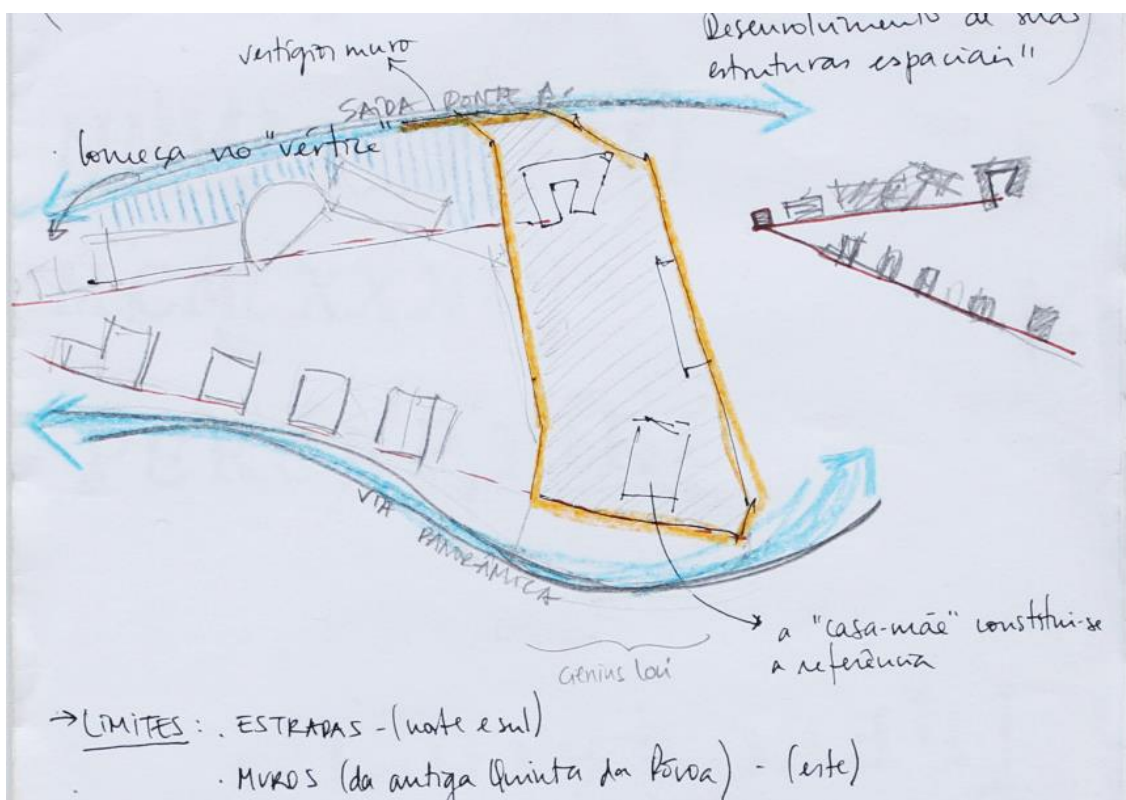 Desenvolvimento de suas
estruturas espaciais"
vestígios muro
SAÍDA PONTE A.
. Começa no "vértice"
VIA
PANORÂMICA
a "casa-mãe" constitui-se
a referência
Genius loci
→ LIMITES: . ESTRADAS - (norte e sul)
. MUROS (da antiga Quinta da Póvoa) - (este)